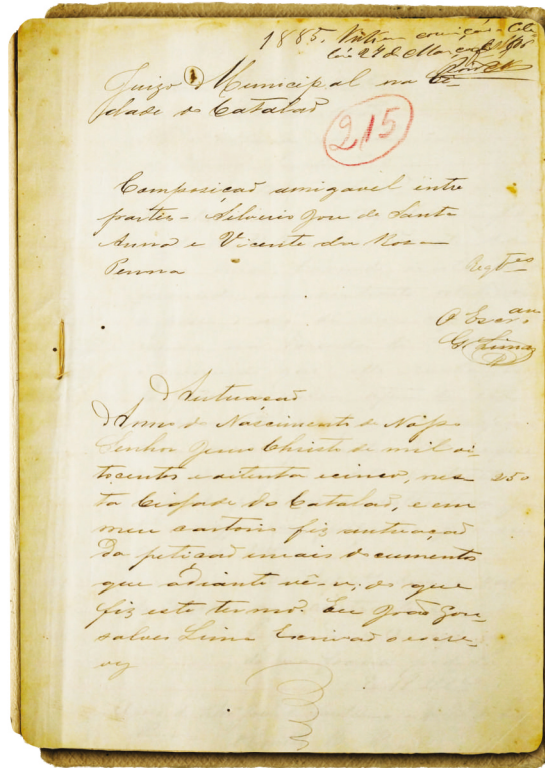 1885. Visto em correição. Cata-
lão 27 de Março de
Juizo Municipal na Ci-
dade do Catalaõ
215
Composiçaõ amigavel entre
partes - Silverio Jose de Santa
Anna e Vicente da Rosa
Penna
Reqtes
O Escram
G. Lima
Autuaçaõ
Anno do Nascimento de Nosso
Senhor Jesus Christo de mil oi-
tocentos e oitenta e cinco, nes-
ta Cidade do Catalaõ, e em
250
meu cartorio fiz autuaçaõ
da petiçaõ e mais documentos
que adiante vê-se; do que
fiz este termo. Eu João Gon-
salves Lima Escrivaõ o escre-
vy